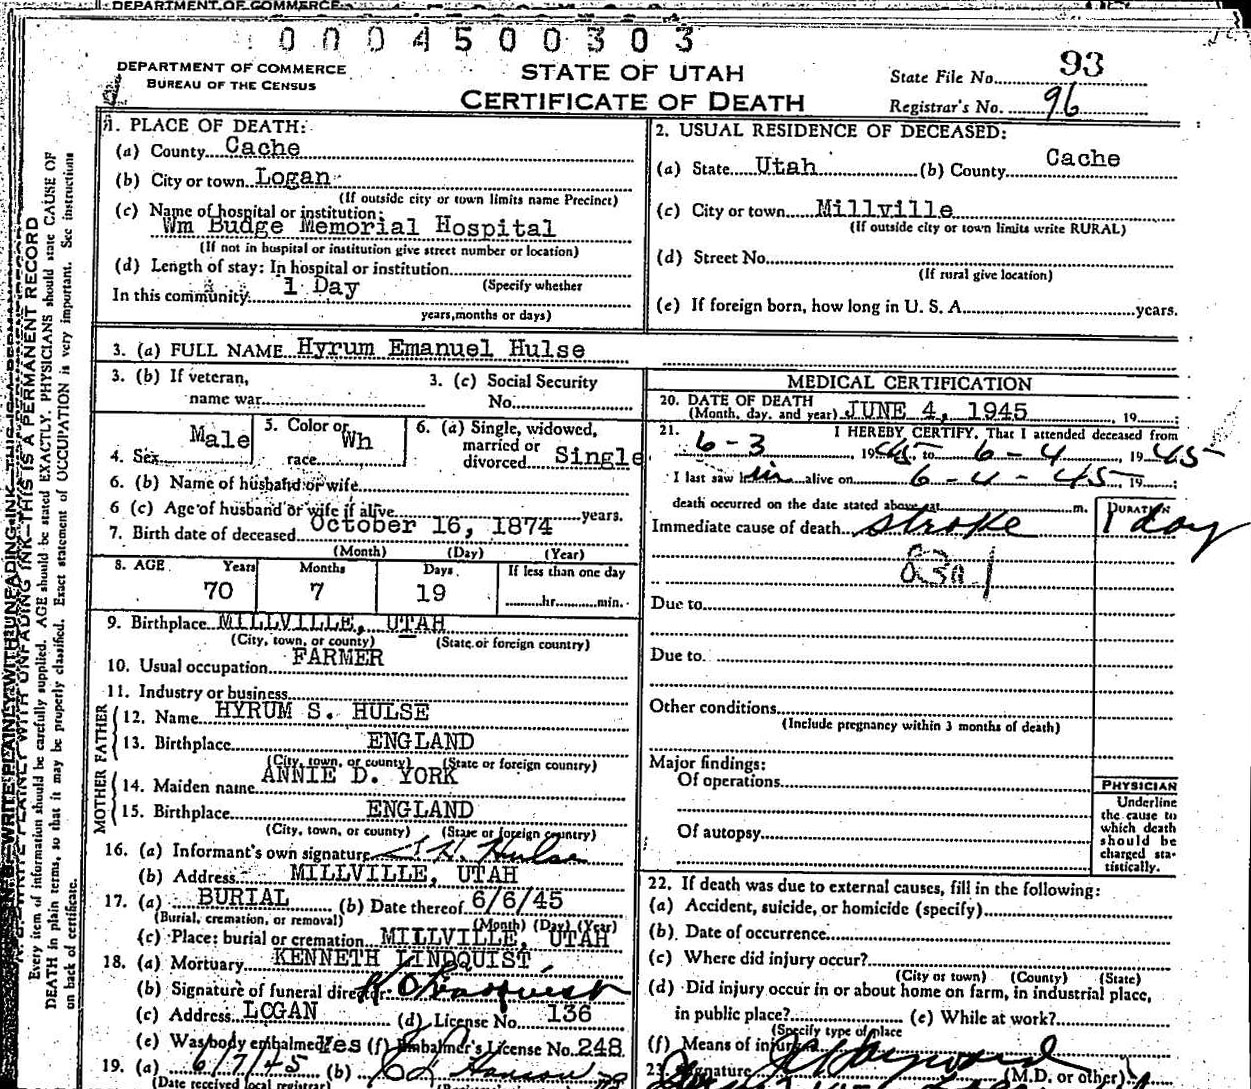 DEPARTMENT OF COMMERCE
0004500303
DEPARTMENT OF COMMERCE
BUREAU OF THE CENSUS
STATE OF UTAH
CERTIFICATE OF DEATH
State File No. 93
Registrar's No. 96
1. PLACE OF DEATH:
(a) County Cache
(b) City or town Logan
(If outside city or town limits name Precinct)
(c) Name of hospital or institution:
Wm Budge Memorial Hospital
(If not in hospital or institution give street number or location)
(d) Length of stay: In hospital or institution
(Specify whether
In this community 1 Day
years, months or days)
2. USUAL RESIDENCE OF DECEASED:
(a) State Utah (b) County Cache
(c) City or town Millville
(If outside city or town limits write RURAL)
(d) Street No.
(If rural give location)
(e) If foreign born, how long in U. S. A. years.
3. (a) FULL NAME Hyrum Emanuel Hulse
3. (b) If veteran,
name war
3. (c) Social Security
No.
4. Sex Male
5. Color or
race Wh
6. (a) Single, widowed,
married or
divorced Single
6. (b) Name of husband or wife
6 (c) Age of husband or wife if alive years.
7. Birth date of deceased October 16, 1874
(Month) (Day) (Year)
8. AGE Years Months Days If less than one day
70 7 19 hr. min.
9. Birthplace MILLVILLE, UTAH
(City, town, or county) (State or foreign country)
10. Usual occupation FARMER
11. Industry or business
FATHER
12. Name HYRUM S. HULSE
13. Birthplace ENGLAND
(City, town, or county) (State or foreign country)
MOTHER
14. Maiden name ANNIE D. YORK
15. Birthplace ENGLAND
(City, town, or county) (State or foreign country)
16. (a) Informant's own signature Hulse
(b) Address MILLVILLE, UTAH
17. (a) BURIAL (b) Date thereof 6/6/45
(Burial, cremation, or removal) (Month) (Day) (Year)
(c) Place: burial or cremation MILLVILLE, UTAH
18. (a) Mortuary KENNETH LINDQUIST
(b) Signature of funeral director
(c) Address LOGAN (d) License No. 136
(e) Was body embalmed? Yes (f) Embalmer's License No. 248
19. (a) 6/7/45 (b)
(Date received local registrar)
MEDICAL CERTIFICATION
20. DATE OF DEATH
(Month, day, and year) JUNE 4, 1945 19
21. I HEREBY CERTIFY, That I attended deceased from
6-3 1945 to 6-4 1945
I last saw him alive on 6-4-45, 19
death occurred on the date stated above at m.
DURATION
Immediate cause of death stroke 1 day
83a1
Due to
Due to
Other conditions
(Include pregnancy within 3 months of death)
Major findings:
Of operations
Of autopsy
PHYSICIAN
Underline
the cause to
which death
should be
charged sta-
tistically.
22. If death was due to external causes, fill in the following:
(a) Accident, suicide, or homicide (specify)
(b) Date of occurrence
(c) Where did injury occur?
(City or town) (County) (State)
(d) Did injury occur in or about home on farm, in industrial place,
in public place? (e) While at work?
(Specify type of place
(f) Means of injury
23. Signature (M.D. or other)
WRITE PLAINLY WITH UNFADING INK—THIS IS A PERMANENT RECORD
Every item of information should be carefully supplied. AGE should be stated EXACTLY. PHYSICIANS should state CAUSE OF
DEATH in plain terms, so that it may be properly classified. Exact statement of OCCUPATION is very important. See instructions
on back of certificate.